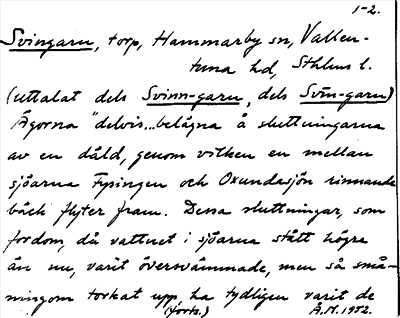 1-2.
Svingarn, torp, Hammarby sn, Vallen-
tuna hd, Sthlms l.
(uttalat dels Svinn-garn, dels Svin-garn)
Ägorna "delvis... belägna å sluttningarna
av en däld, genom vilken en mellan
sjöarna Fysingen och Oxundasjön rinnande
bäck flyter fram. Dessa sluttningar, som
fordom, då vattnet i sjöarna stått högre
än nu, varit översvämmade, men så små-
ningom torkat upp, ha tydligen varit de
(forts.) Å.N. 1952.